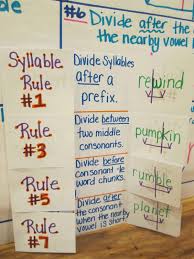 #6 Divide after the
the nearby vowel i
Syllable
Rule
#1
Divide Syllables
after a
prefix.
rewind
Rule
#3
Divide between
two middle
consonants.
pumpkin
Rule
#5
Divide before
consonant -le
word chunks.
rumble
Rule
#7
Divide after
the consonant
when the nearby
vowel is short.
planet